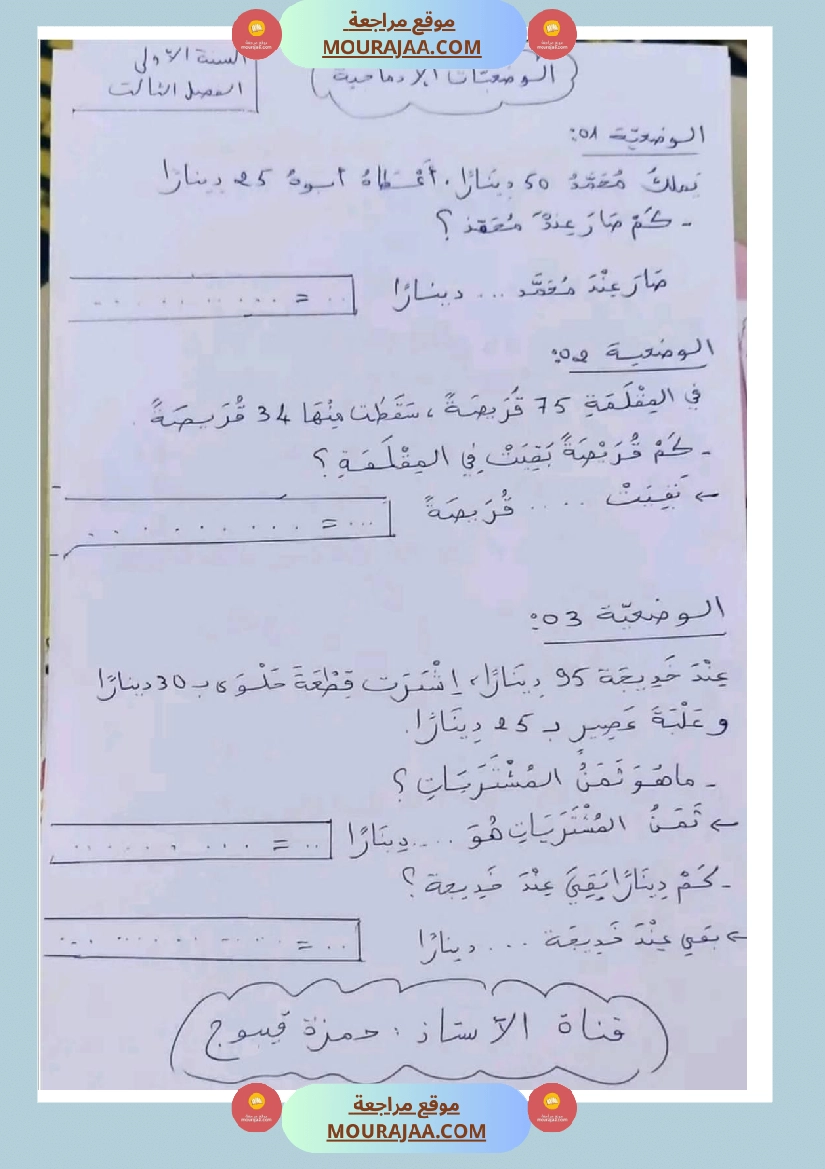 موقع مراجعة
MOURAJAA.COM
السنة الأولى
الفصل الثالث
الوضعيات الإدماجية
الوضعيّة 01:
يَملكُ مُحَمَّدٌ 50 دِينَارًا، أَعْطَاهُ أبوهُ 25 دِينارًا
- كَمْ صَارَ عِنْدَ مُحَمَّد ؟
صَارَ عِنْدَ مُحَمَّد ... دينارًا
.. = ..........
الوضعية 02:
في المِقْلَمَة 75 قُرَيصَةً، سَقَطَت مِنْهَا 34 قُرَيصَةً
- كَمْ قُرَيْصَةً بَقِيَتْ فِي المِقْلَمَةِ ؟
← بَقِيَتْ .... قُرَيصَةً
... = .........
الوضعيّة 03:
عِنْدَ خَدِيجَة 95 دِينَارًا، اِشْتَرَت قِطْعَةَ حَلْوَى بـ 30 دينارًا
و عُلْبَةَ عَصِيرٍ بـ 25 دِينَارًا.
- ماهُوَ ثَمَنُ المُشْتَرَيَاتِ ؟
← ثَمَنُ المُشْتَرَيَاتِ هُوَ ....دِينَارًا
.. = ........
- كَمْ دِينَارًا بَقِيَ عِنْدَ خَدِيجة ؟
← بَقي عِنْدَ خَدِيجَة ... دينارًا
.. = ..........
قناة الأستاذ : حمزة قسوج
موقع مراجعة
MOURAJAA.COM